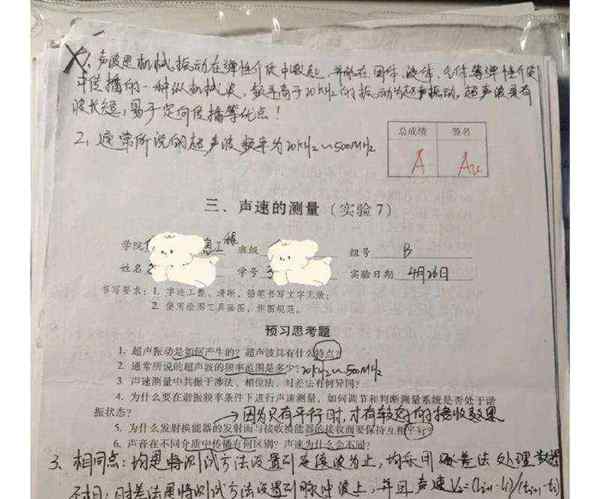 1、声波是机械振动在弹性介质中激起,并能在固体、液体、气体等弹性介质
中传播的一种纵机械波,频率高于20kHz的振动为超声振动,超声波具有
波长短,易于定向传播等优点!
2、通常所说的超声波频率为20kHz~500MHz
总成绩 签名
A
三、声速的测量(实验7)
学院 工程 班级 组号 B
姓名 学号 实验日期 4月26日
书写要求:1. 字迹工整、清晰,铅笔书写文字无效;
2. 使用绘图工具画图,作图规范。
预习思考题
1. 超声振动是如何产生的?超声波具有什么特点?
2. 通常所说的超声波的频率范围是多少?20kHz~500MHz
3. 声速测量中共振干涉法、相位法、时差法有何异同?
4. 为什么要在谐振频率条件下进行声速测量,如何调节和判断测量系统是否处于谐
振状态?
→因为只有平行时,才有较好的接收效果
5. 为什么发射换能器的发射面与接收换能器的接收面要保持互相平行?
6. 声音在不同介质中传播有何区别?声速为什么会不同?
3、相同点:均是将测试方法设置到连续波上,均采用逐差法处理数据
不同:时差法是将测试方法设置到脉冲波上,并且声速